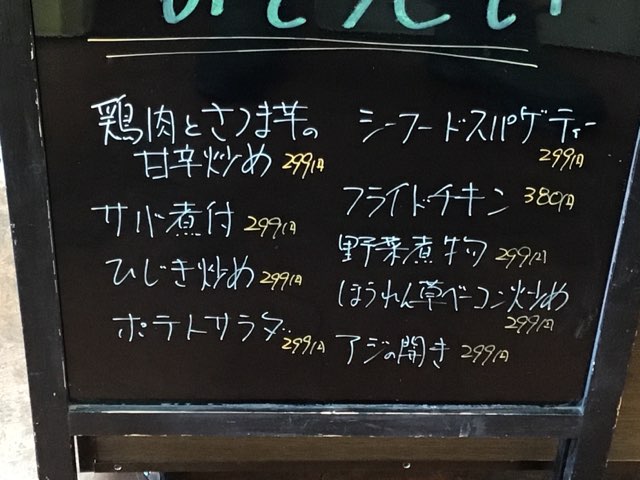 鶏肉とさつま芋の
甘辛炒め 299円
サバ煮付 299円
ひじき炒め 299円
ポテトサラダ 299円
シーフードスパゲティー
299円
フライドチキン 380円
野菜煮物 299円
ほうれん草ベーコン炒め
299円
アジの開き 299円